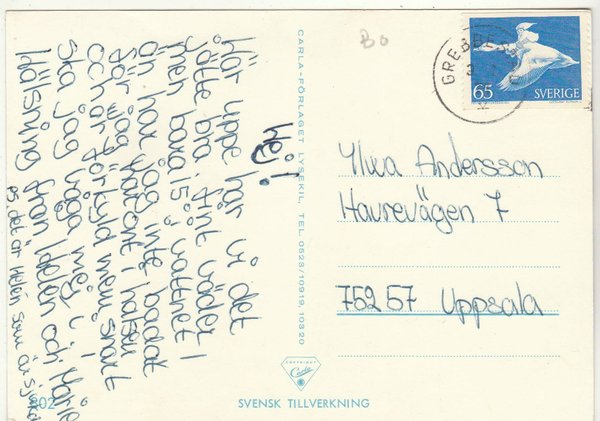 Hej!
Här uppe har vi det
jätte bra, fint väder!
men bara 15° i vattnet!
än har jag inte badat
för jag har ont i halsen
och är förkyld men snart
ska jag våga mej i!
Hälsning från Helen och Marie
ps. det är Helen som är sjuk
B0
65
SVERIGE
GREBBESTAD
CARLA-FÖRLAGET LYSEKIL, TEL 0523/10919, 10320
Ylwa Andersson
Havrevägen 7
752 57 Uppsala
COPYRIGHT
Carla
SVENSK TILLVERKNING